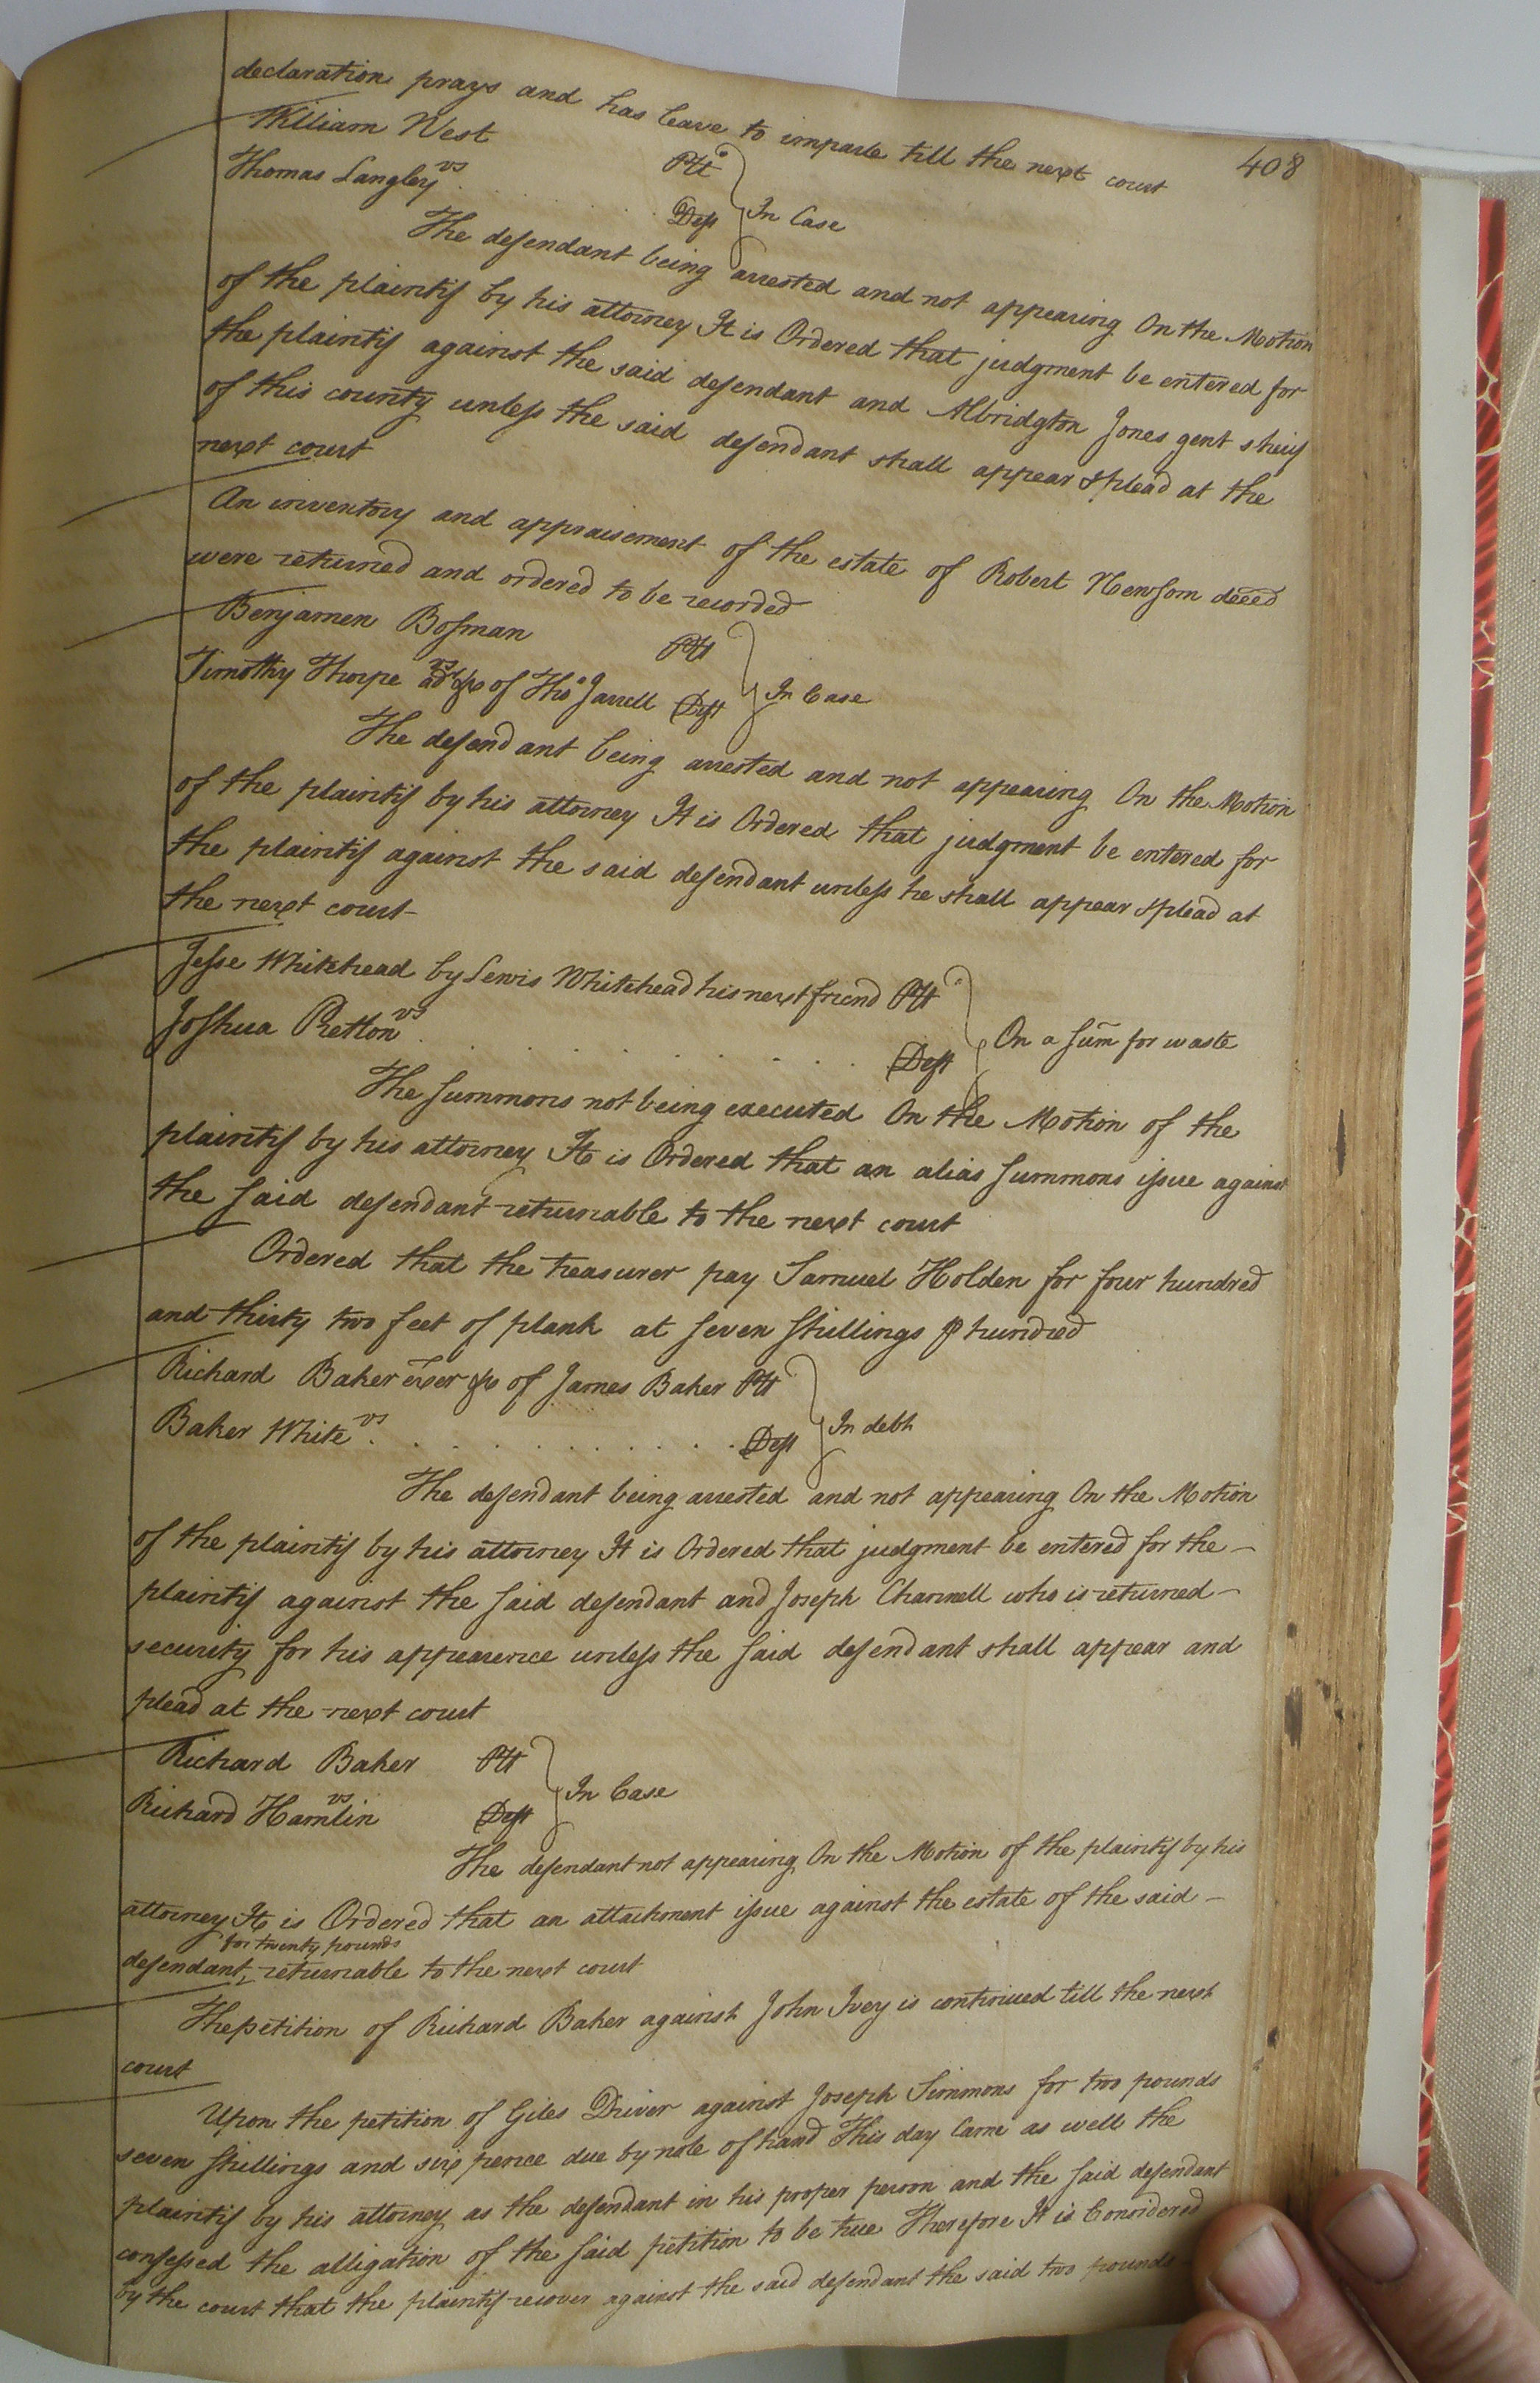 408
declaration prays and has leave to imparle till the next court
William West Plt
vs
Thomas Langley Deft In Case
The defendant being arrested and not appearing On the Motion
of the plaintif by his attorney It is Ordered that judgment be entered for
the plaintif against the said defendant and Albridgton Jones gent sherif
of this county unless the said defendant shall appear & plead at the
next court
An inventory and appraisement of the estate of Robert Newsom deced
were returned and ordered to be recorded
Benjamen Bosman Plt
vs
Timothy Thorpe adr &c of Thos Jarrell Deft In Case
The defendant being arrested and not appearing On the Motion
of the plaintif by his attorney It is Ordered that judgment be entered for
the plaintif against the said defendant unless he shall appear & plead at
the next court
Jesse Whitehead by Lewis Whitehead his next friend Plt
vs
Joshua Pretlon Deft On a sum for waste
The summons not being executed On the Motion of the
plaintif by his attorney It is Ordered that an alias summons issue against
the said defendant returnable to the next court
Ordered that the treasurer pay Samuel Holden for four hundred
and thirty two feet of plank at seven shillings ⅌ hundred
Richard Baker exer &c of James Baker Plt
vs
Baker White Deft In debt
The defendant being arrested and not appearing On the Motion
of the plaintif by his attorney It is Ordered that judgment be entered for the
plaintif against the said defendant and Joseph Channell who is returned
security for his appearence unless the said defendant shall appear and
plead at the next court
Richard Baker Plt
vs
Richard Hamlin Deft In Case
The defendant not appearing On the Motion of the plaintif by his
attorney It is Ordered that an attachment issue against the estate of the said
for twenty pounds
defendant ‸ returnable to the next court
The petition of Richard Baker against John Ivey is continued till the next
court
Upon the petition of Giles Driver against Joseph Simmons for two pounds
seven shillings and six pence due by note of hand This day Came as well the
plaintif by his attorney as the defendant in his proper person and the said defendant
confessed the alligation of the said petition to be true Therefore It is Considered
by the court that the plaintif recover against the said defendant the said two pounds